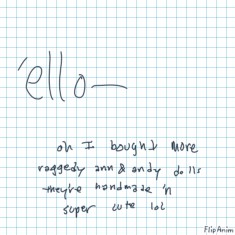 'ello—
oh I bought more
raggedy ann & andy dolls
they're handmade 'n
super cute lol
FlipAnim